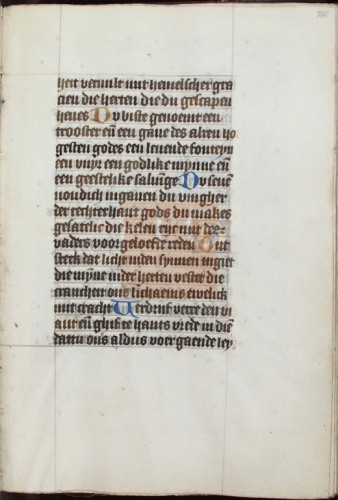 heit veruult mit hemelscher gra
cien die herten die du gescapen
heues Du biste genoemt een
trooster en̄ een gaue des alren ho
gesten godes een leuende fonteyn
een vuyr een godlike mynne en̄
een geestelike saluinge Du seuē
voudich in gauen du vingher
der rechterhant gods du makes
gesatelic die kelen
vaders voor geloefte reden Ont
steck dat licht in den synnen in giet
die myn̄e in der herten vestet die
crancheit ons lichaems ewelick
mit cracht Verdrijf verre den vi
ant en̄ ghif te hants vrede in diē
dattu ons aldus voer gaende ley